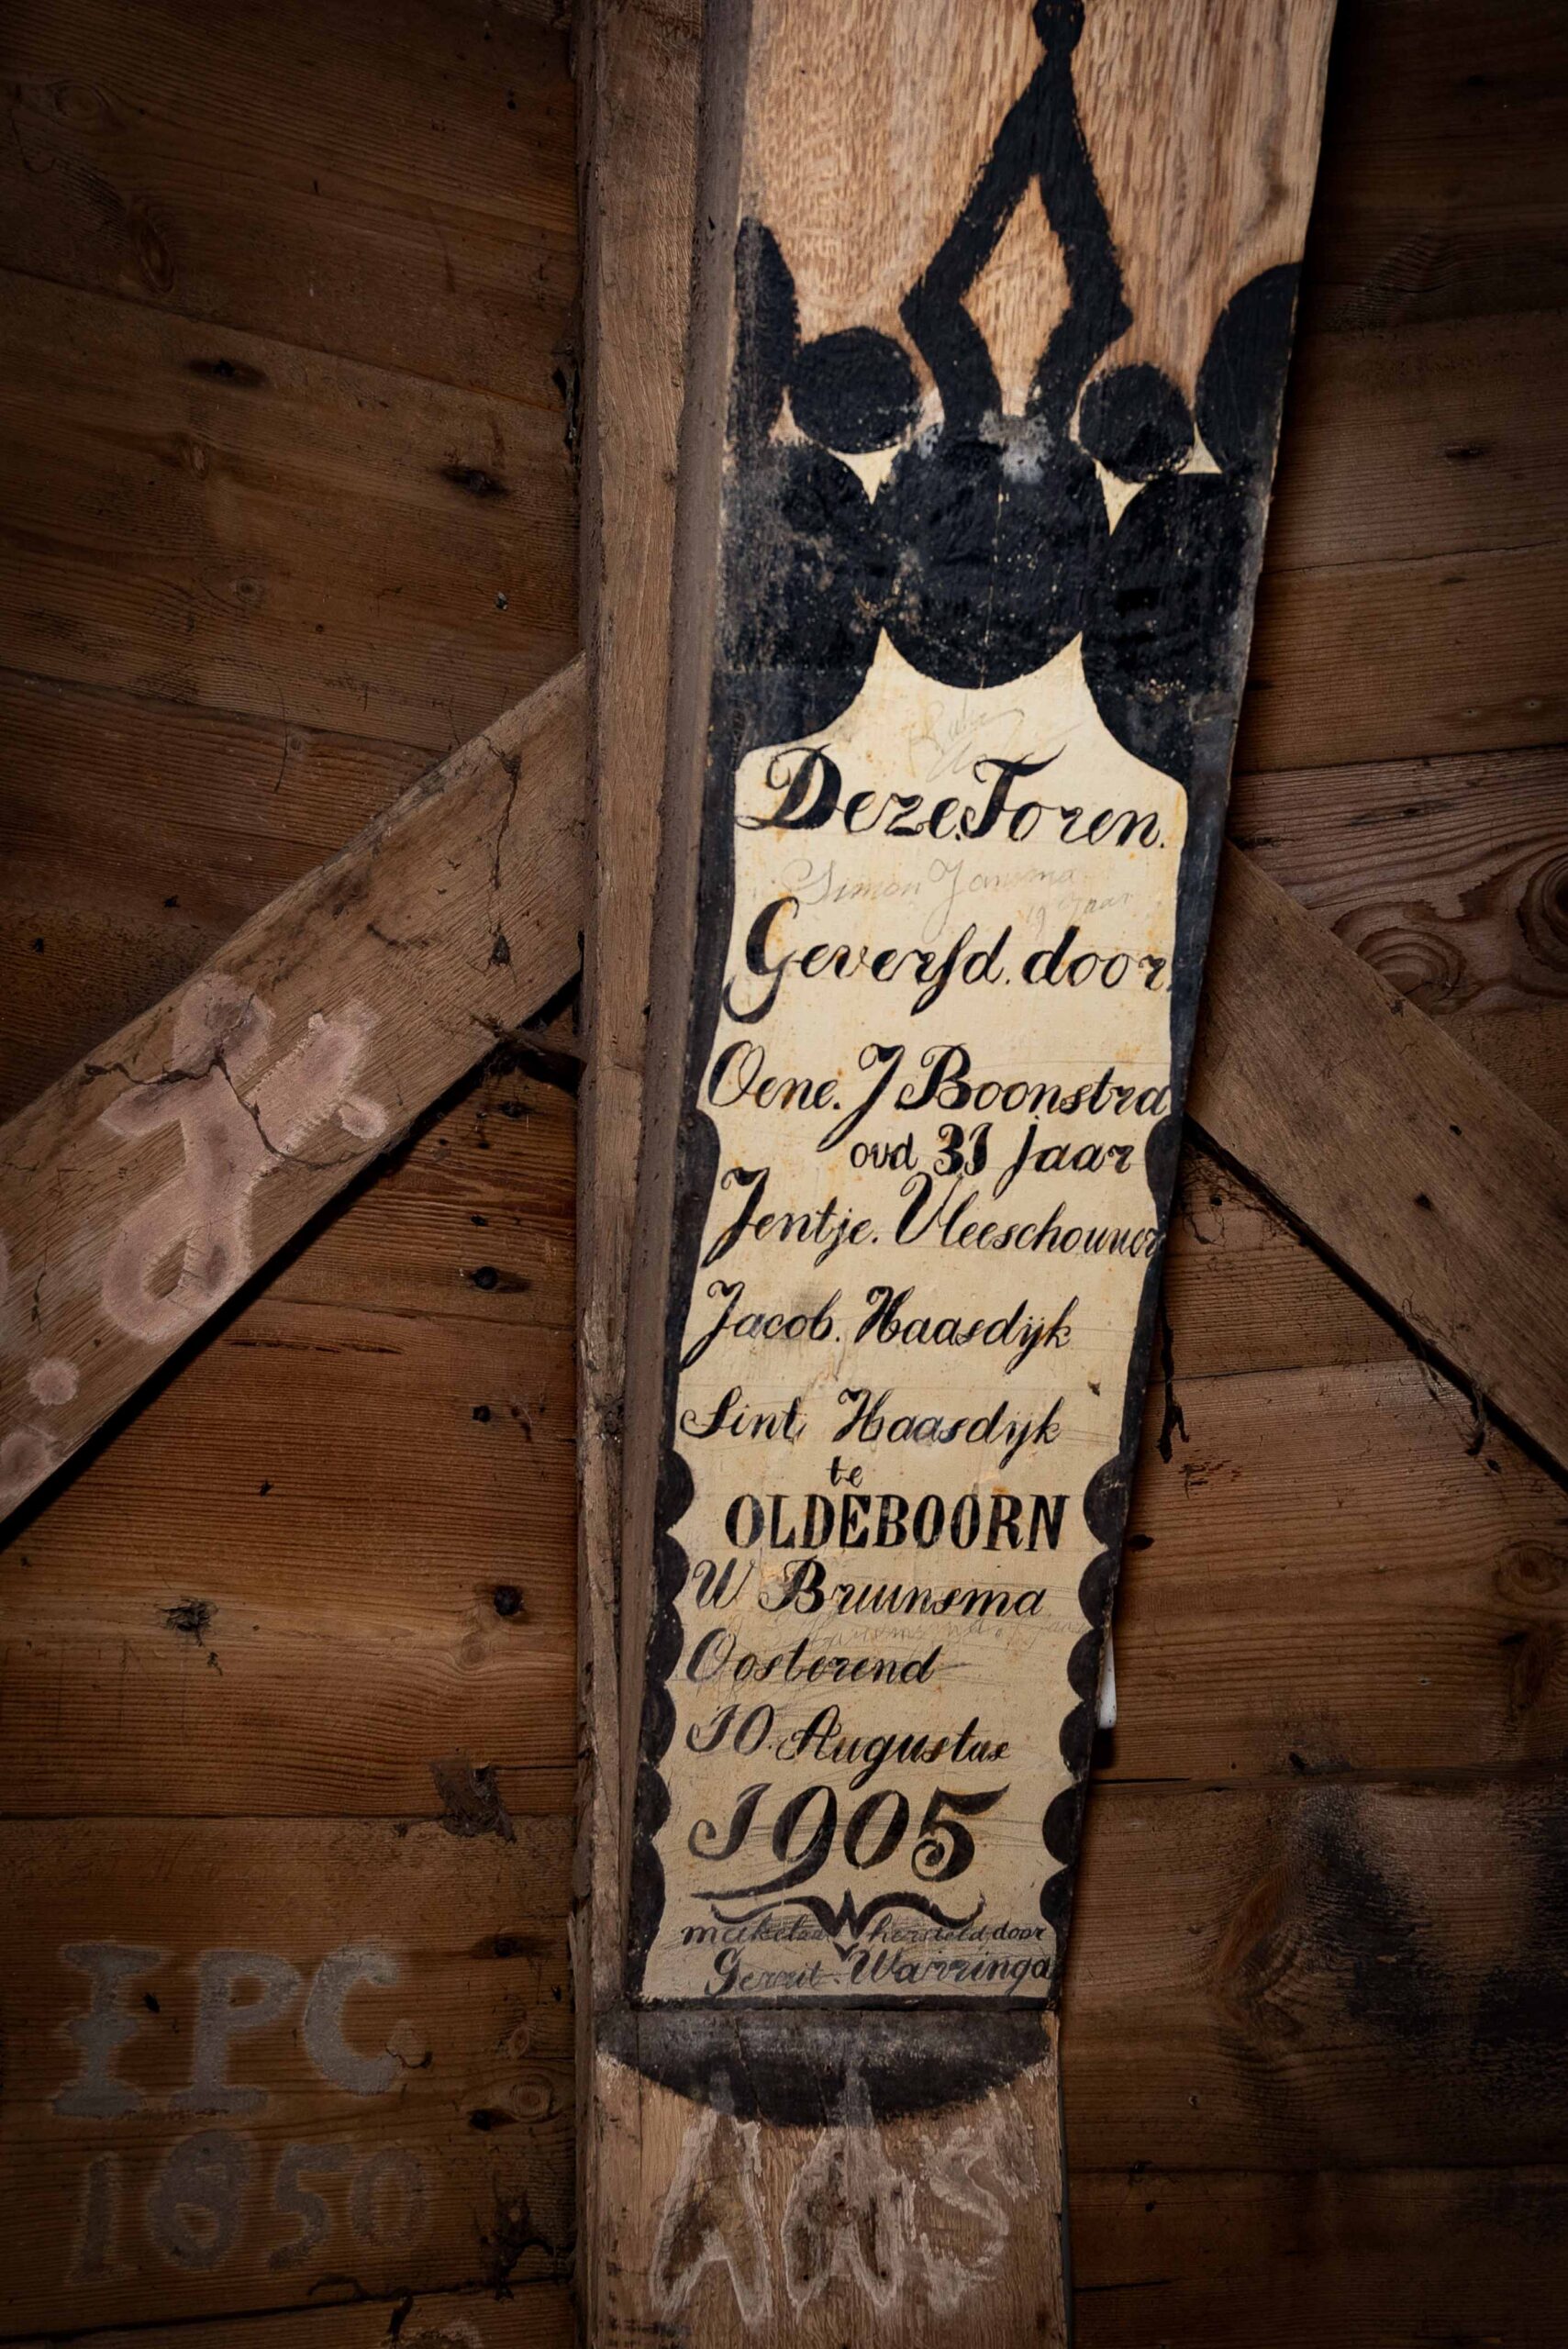 Deze Toren.
Simon Jansma
19 Jaar
Geversd. door.
Oene. J Boonstra
oud 31 jaar
Jentje. Vleeschouwer
Jacob. Haasdijk
Sint, Haasdijk
te
OLDEBOORN
W Bruunsma
Oosterend
10. Augustus
1905
makelaar hersteld, door
Gerrit. Warringa
IPC
1850